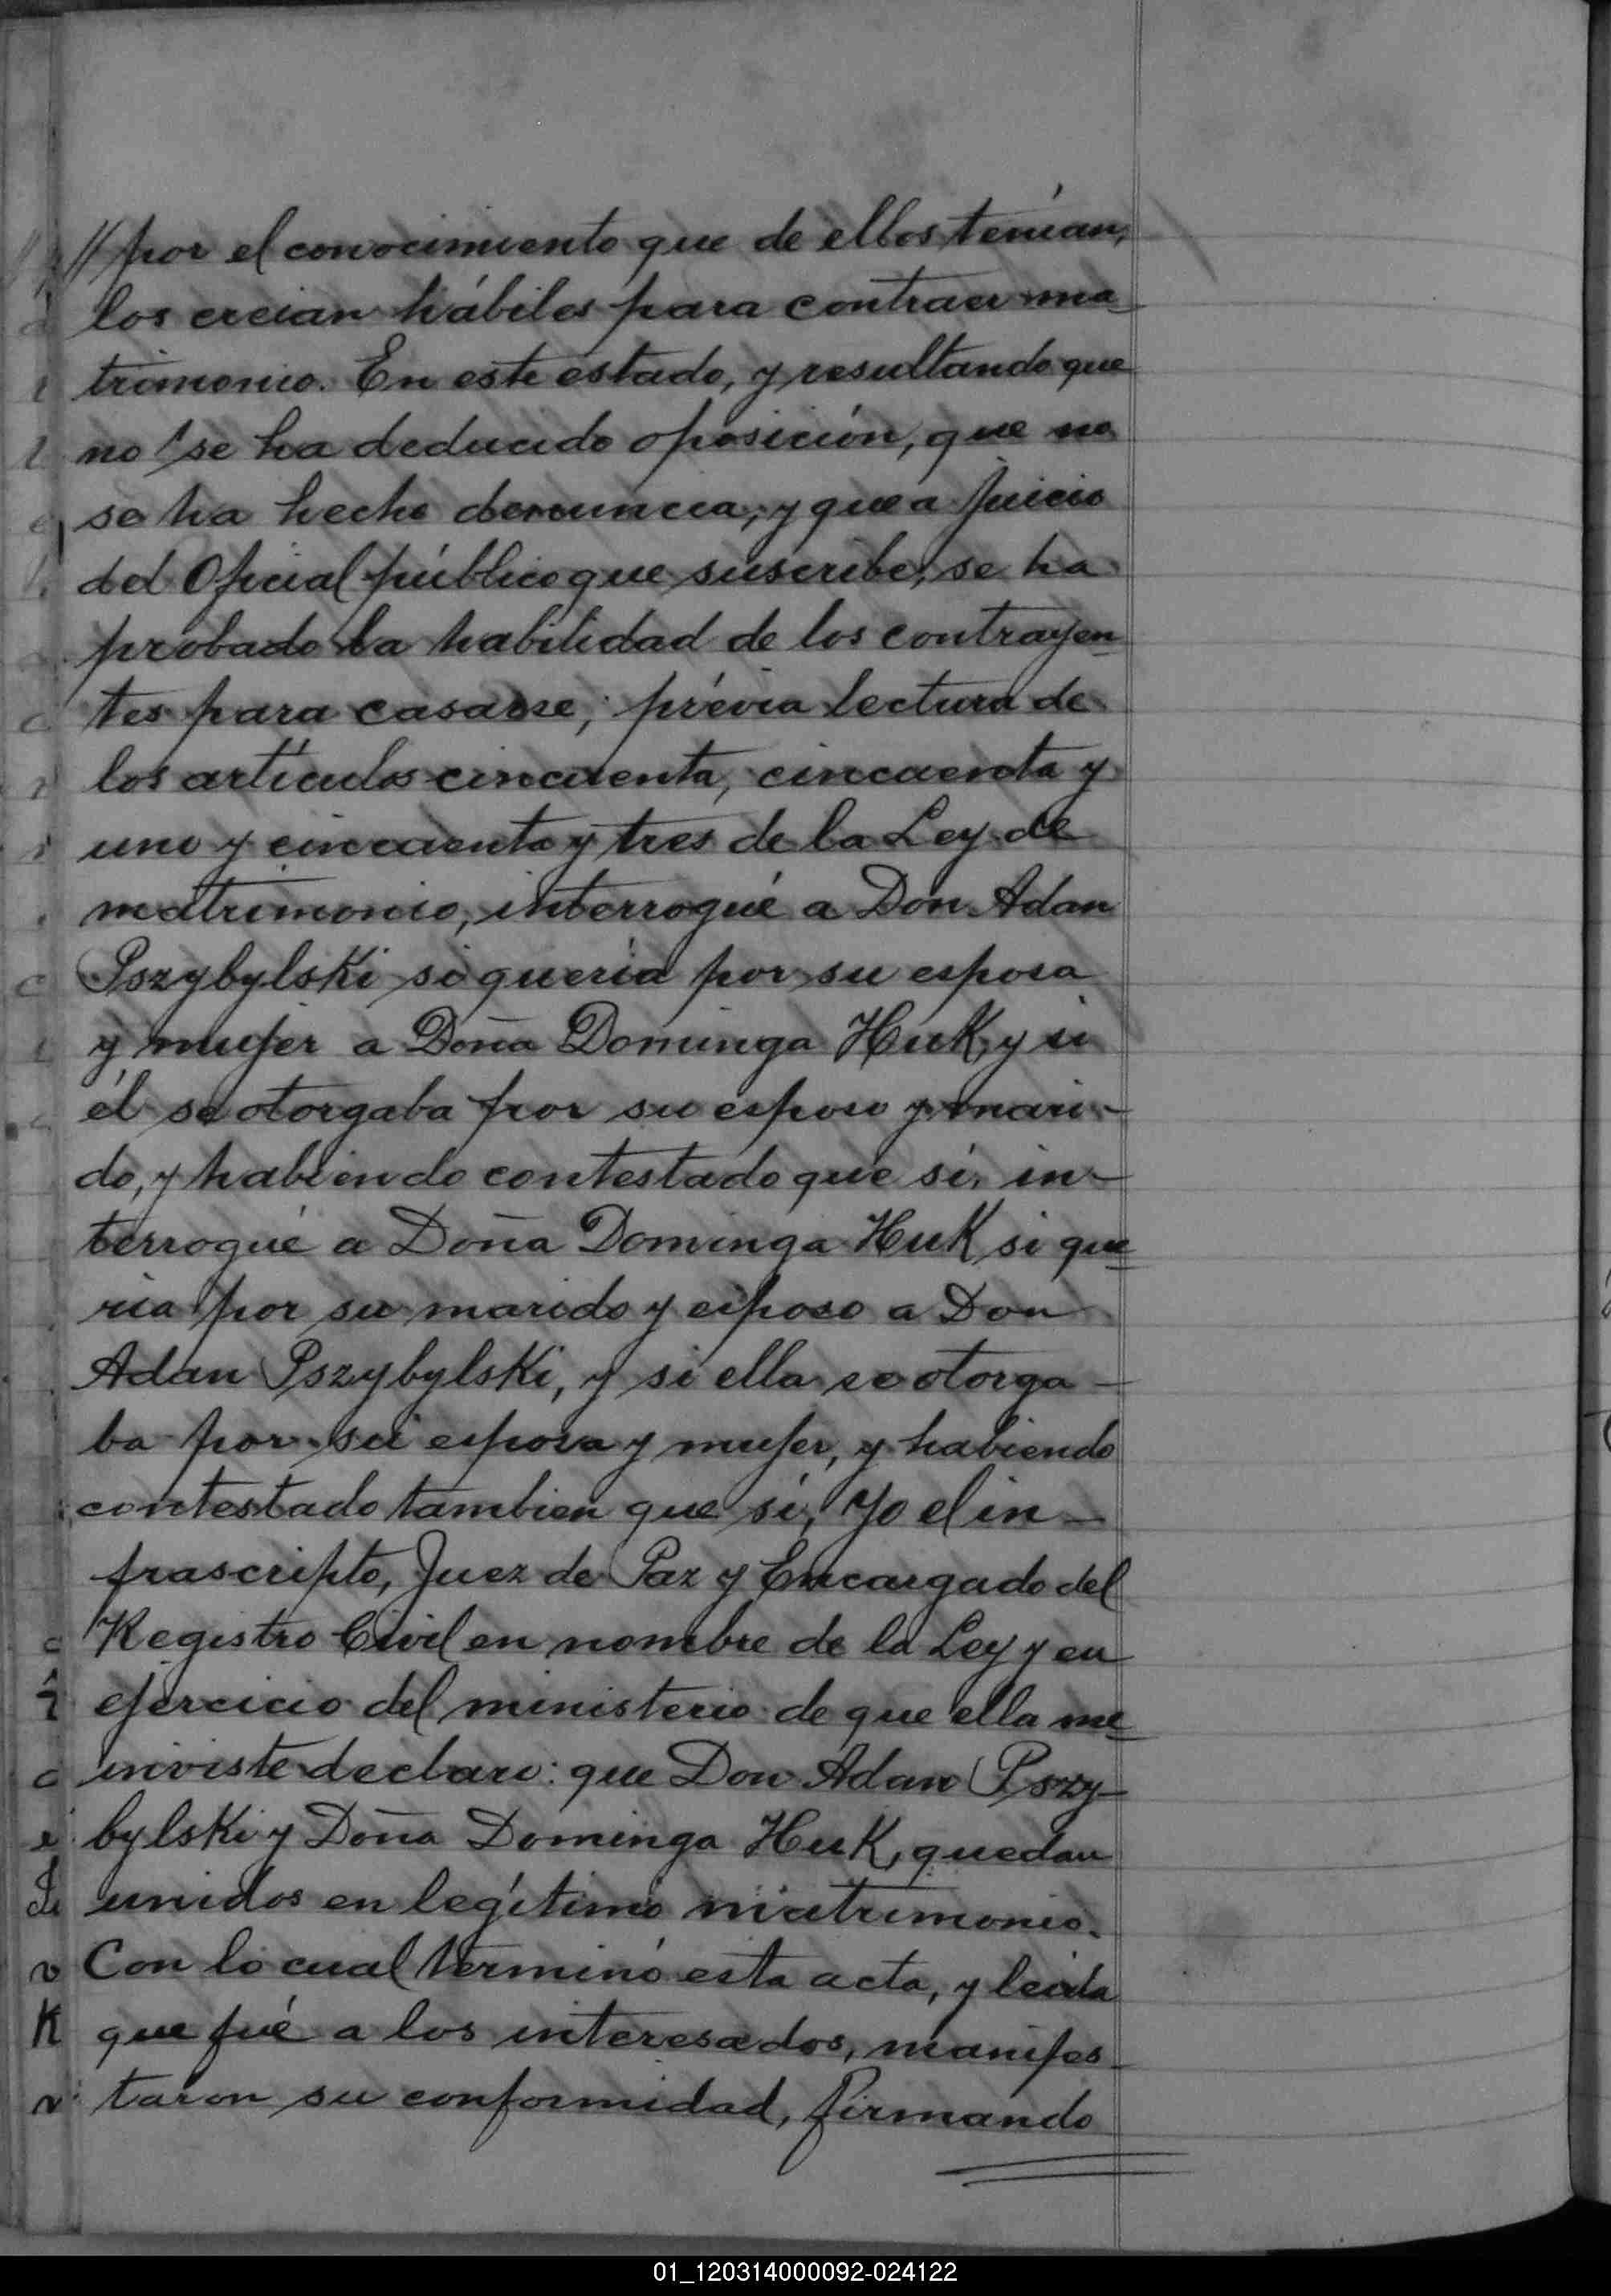 // por el conocimiento que de ellos tenían,
los creian hábiles para contraer ma-
trimonio. En este estado, y resultando que
no se ha deducido oposición, que no
se ha hecho denuncia, y que a juicio
del Oficial público que suscribe, se ha
probado la habilidad de los contrayen-
tes para casarse; prévia lectura de
los artículos cincuenta, cincuenta y
uno y cincuenta y tres de la Ley de
matrimonio, interrogué a Don Adan
Pszybylski si quería por su esposa
y mujer a Doña Dominga Huk, y si
él se otorgaba por su esposo y mari-
do, y habiendo contestado que sí, in-
terrogué a Doña Dominga Huk si que-
ria por su marido y esposo a Don
Adan Pszybylski, y si ella se otorga-
ba por su esposa y mujer, y habiendo
contestado tambien que sí, Yo el in-
frascripto, Juez de Paz y Encargado del
Registro Civil en nombre de la Ley y en
ejercicio del ministerio de que ella me
inviste declaro: que Don Adan Pszy-
bylski y Doña Dominga Huk, quedan
unidos en legítimo matrimonio.
Con lo cual terminó esta acta, y leída
que fué a los interesados, manifes-
taron su conformidad, firmando
01_120314000092-024122